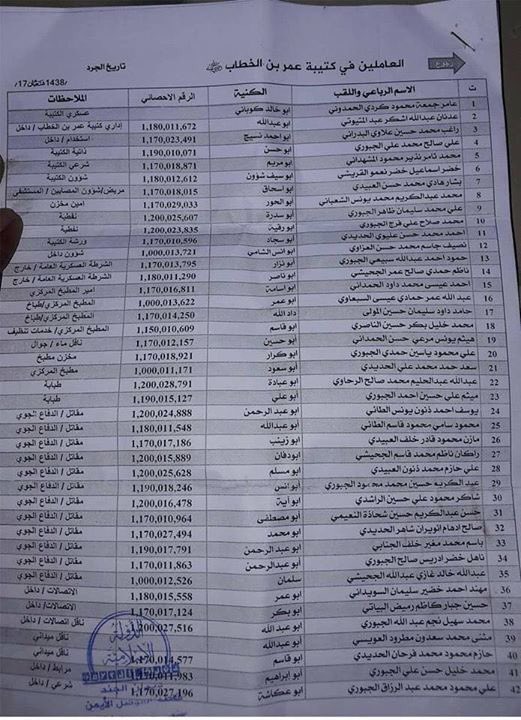 العاملين في كتيبة عمر بن الخطاب
تاريخ الجرد
ت الاسم الرباعي واللقب الكنية الرقم الاحصائي الملاحظات
1 عامر جمعة محمود كردي الحمدوني ابو خالد كوباني عسكري الكتيبة
2 عدنان عبدالله اشكر عبد المتيوتي ابو عبدالله 1,180,011,672 إداري كتيبة عمر بن الخطاب / داخل
3 راغب محمد حسين علاوي البدراني ابو احمد نسيج 1,170,023,491 استخدام / داخل
4 علي صالح محمد علي الجبوري ابو حسن 1,190,010,071 ذاتية الكتيبة
5 محمد ثامر نذير محمود المشهداني ابو مريم 1,170,018,871 شرعي الكتيبة
6 خضر اسماعيل خضر نعمو القريشي ابو سيف شؤون 1,180,012,612 شؤون الكتيبة
7 بشار هادي محمد حسن العبيدي ابو اسحاق 1,170,018,015 مريض/شؤون المصابين / المستشفى
8 محمد عبدالكريم محمد يونس الشعباني ابو الحور 1,170,029,033 امين مخزن
9 علي محمد سليمان ظاهر الجبوري ابو سدرة 1,200,025,607 نفطية
10 محمد صلاح علي فرج الجبوري ابو رقية 1,200,023,835 نفطية
11 احمد محمد حسن عليوي الحديدي ابو سجاد 1,170,010,596 ورشة الكتيبة
12 نصيف جاسم محمد حسن العزاوي ابو انس الشامي 1,000,013,721 شؤون داخل
13 حمود احمد عبدالله سبيعي الجبوري ابو نزار 1,170,013,795 الشرطة العسكرية العامة / خارج
14 ناظم حمدي صالح عمر الجحيشي ابو ناصر 1,180,011,290 الشرطة العسكرية العامة / خارج
15 احمد عيسى محمد داود الحمداني ابو اسامة 1,170,016,811 امير المطبخ المركزي
16 عبد الله عمر حمادي عيسى السبعاوي ابو عمر 1,000,013,622 المطبخ المركزي/طباخ
17 حامد داود سليمان حسين المولى داد الله 1,170,014,250 المطبخ المركزي/طباخ
18 محمد خليل بكر حسين الناصري ابو قاسم 1,150,010,609 المطبخ المركزي/ خدمات تنظيف
19 هيثم يونس مرعي حسن الحمداني ابو حسين 1,170,012,157 ناقل ماء / جوال
20 علي محمود ياسين حمدي الجبوري ابو كرار 1,170,018,921 مخزن مطبخ
21 سعد حمد محمد علي الحديدي ابو سعود 1,000,011,171 المطبخ المركزي
22 عبدالله عبدالحليم محمد صالح الرحاوي ابو عبادة 1,200,028,791 طبابة
23 ميثم علي حسين احمد الجبوري ابو علي 1,190,015,127 طبابة
24 يوسف احمد ذنون يونس الطائي ابو عبد الرحمن 1,200,024,888 مقاتل / الدفاع الجوي
25 محمود سامي محمود قاسم الطائي ابو عبدالله 1,180,011,548 مقاتل / الدفاع الجوي
26 مازن محمود قادر خلف العبيدي ابو زينب 1,170,017,186 مقاتل / الدفاع الجوي
27 راكان ناظم محمد قاسم الجحيشي ابودفان 1,200,015,889 مقاتل / الدفاع الجوي
28 علي حازم محمد ذنون العبيدي ابو مسلم 1,200,025,628 مقاتل / الدفاع الجوي
29 عبد الكريم حسين محمد محمود الجبوري ابو انس 1,190,018,246 مقاتل / الدفاع الجوي
30 شاكر محمود علي حسين الراشدي ابو آية 1,200,016,478 مقاتل / الدفاع الجوي
31 حسن عبدالكريم حسين شحاذة النعيمي ابو مصطفى 1,170,010,964 مقاتل / الدفاع الجوي
32 صالح ادهام انويران شاهر الحديدي ابو محمد 1,170,027,494 مقاتل / الدفاع الجوي
33 باسم محمد مغير خلف الجنابي ابو عبد الرحمن 1,190,017,791 مقاتل / الدفاع الجوي
34 ناهل خضر ادريس صالح الجبوري ابو عبدالرحمن 1,170,011,863 مقاتل / الدفاع الجوي
35 عبدالله خالد غازي عبدالله الجحيشي سلمان 1,000,012,526 مقاتل / الدفاع الجوي
36 مهند احمد خضير سليمان السويداني ابو عمر 1,180,015,558 الاتصالات / داخل
37 حسين جبار كاظم رميض البياتي ابو بكر 1,170,017,124 الاتصالات / داخل
38 محمد سهيل نجم عبد الله الجبوري ابو عبد الله 1,200,027,516 الاتصالات/ داخل
39 مثنى محمد سعدون مطرود العويسي ابو عبدالله ناقل ميداني
40 حازم محمود محمد فرحان الحديدي ابو قاسم 1,170,014,577 ناقل ميداني
41 محمد خليل حسن علي الجبوري ابو ابراهيم مرابط / داخل
42 علي محمود محمد عبد الرزاق الجبوري ابو عكاشة 1,170,027,196 شرعي / داخل
الدولة
الاسلامية